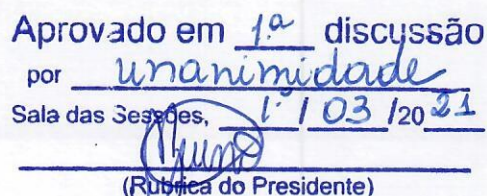 Aprovado em 1.ª discussão
por unanimidade
Sala das Sessões, 1º / 03 /20 21
(Rubrica do Presidente)